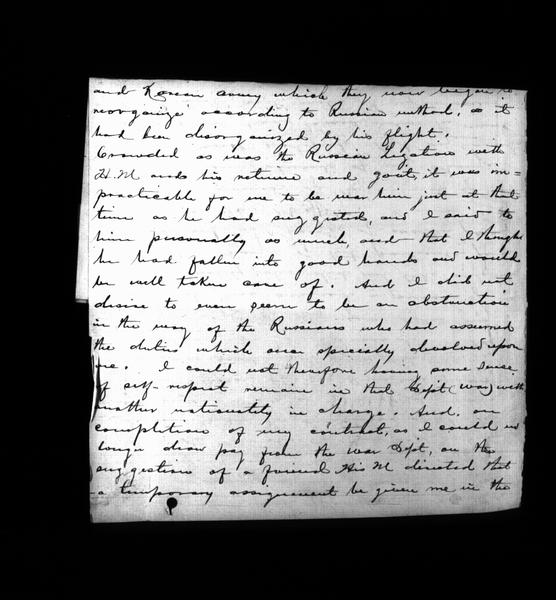 and Korean army which they now began to
reorganize according to Russian method, as it
had been disorganized by his flight.
Crowded as was the Russian Legation with
H.M. and his retinue and gov't, it was im=
practicable for me to be near him just at that
time as he had suggested, and I said to
him personally as much, and that I thought
he had fallen into good hands and would
be well taken care of. And I did not
desire to even seem to be an obstruction
in the way of the Russians who had assumed
the duties which were specially devolved upon
me. I could not therefore having some sense
of self-respect remain in that Dept (War) with
another nationality in charge. And, on
completion of my contract, as I could no
longer draw pay from the War Dept, on the
suggestion of a friend His M directed that
a temporary assignment be given me in the